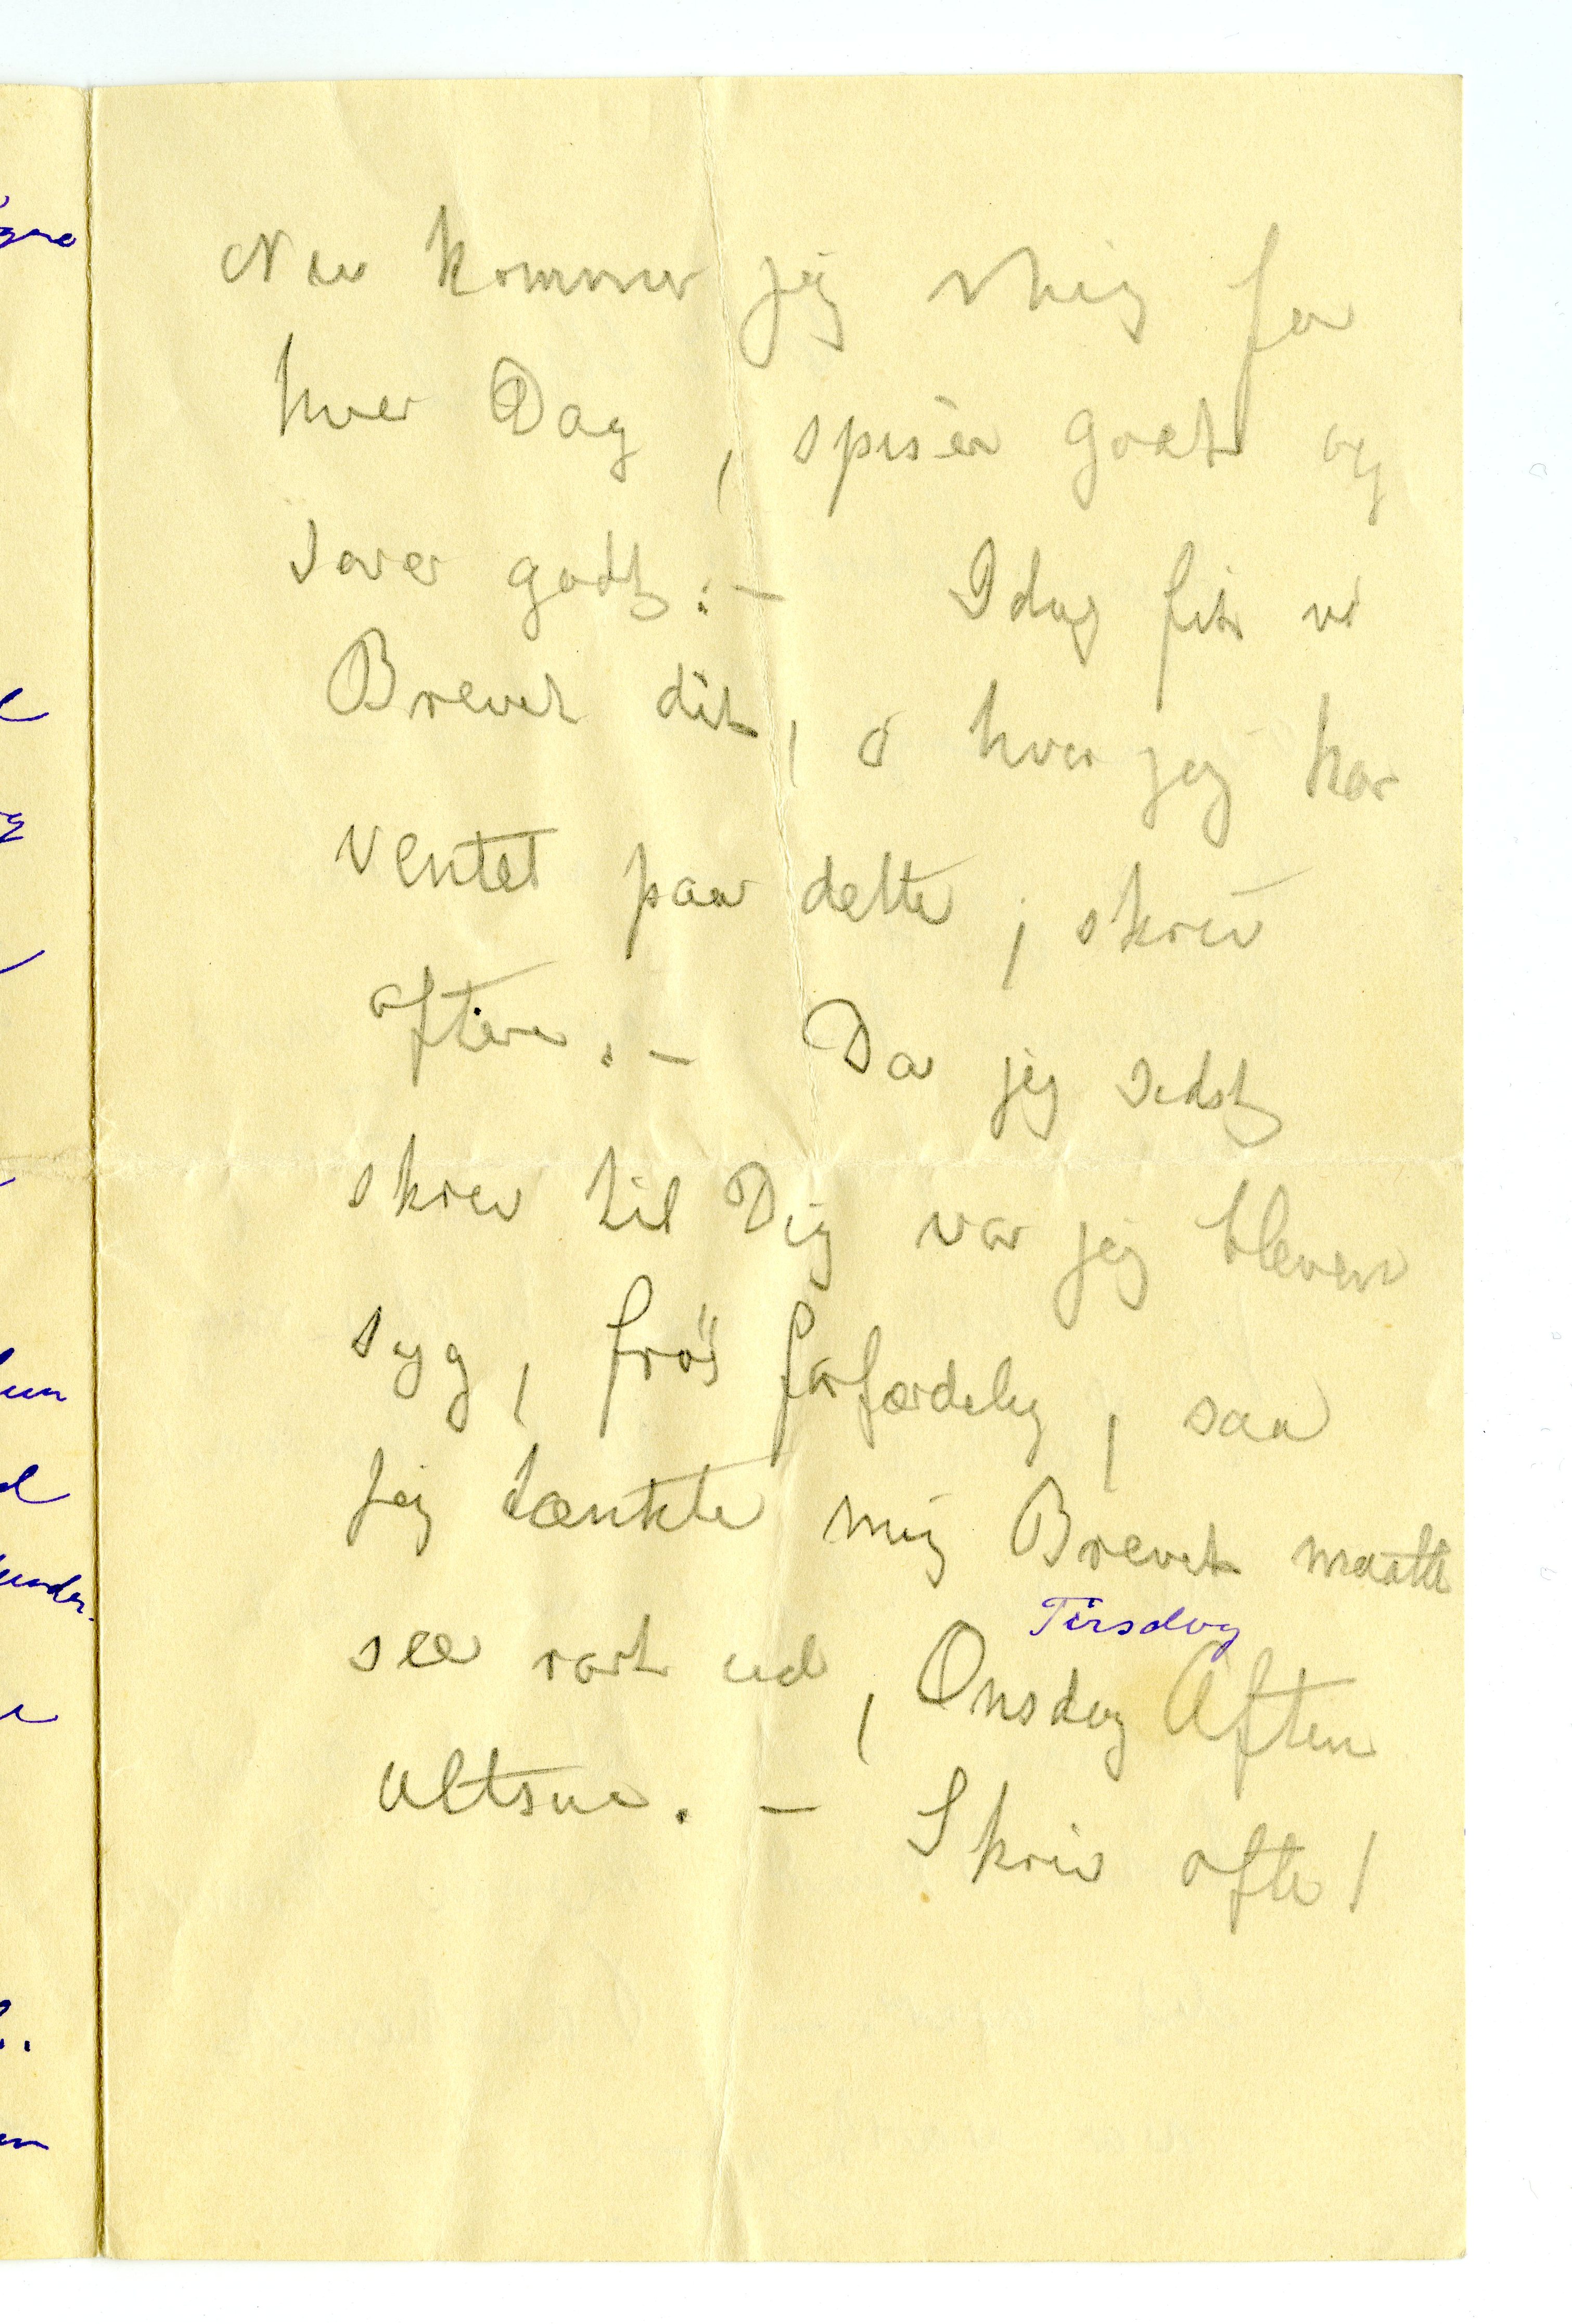 Nu kommer jeg mig for
hver Dag, spiser godt og
sover godt. – Idag fik vi
Brevet dit, ó hvor jeg har
ventet paa dette, skriv
oftere. – Da jeg sidst
skrev til Dig var jeg bleven
syg, frös forfærdelig, saa
jeg tænkte mig Brevet maatte
Tirsdag
see rart ud, Onsdag Aften
altsaa. – Skriv ofte!